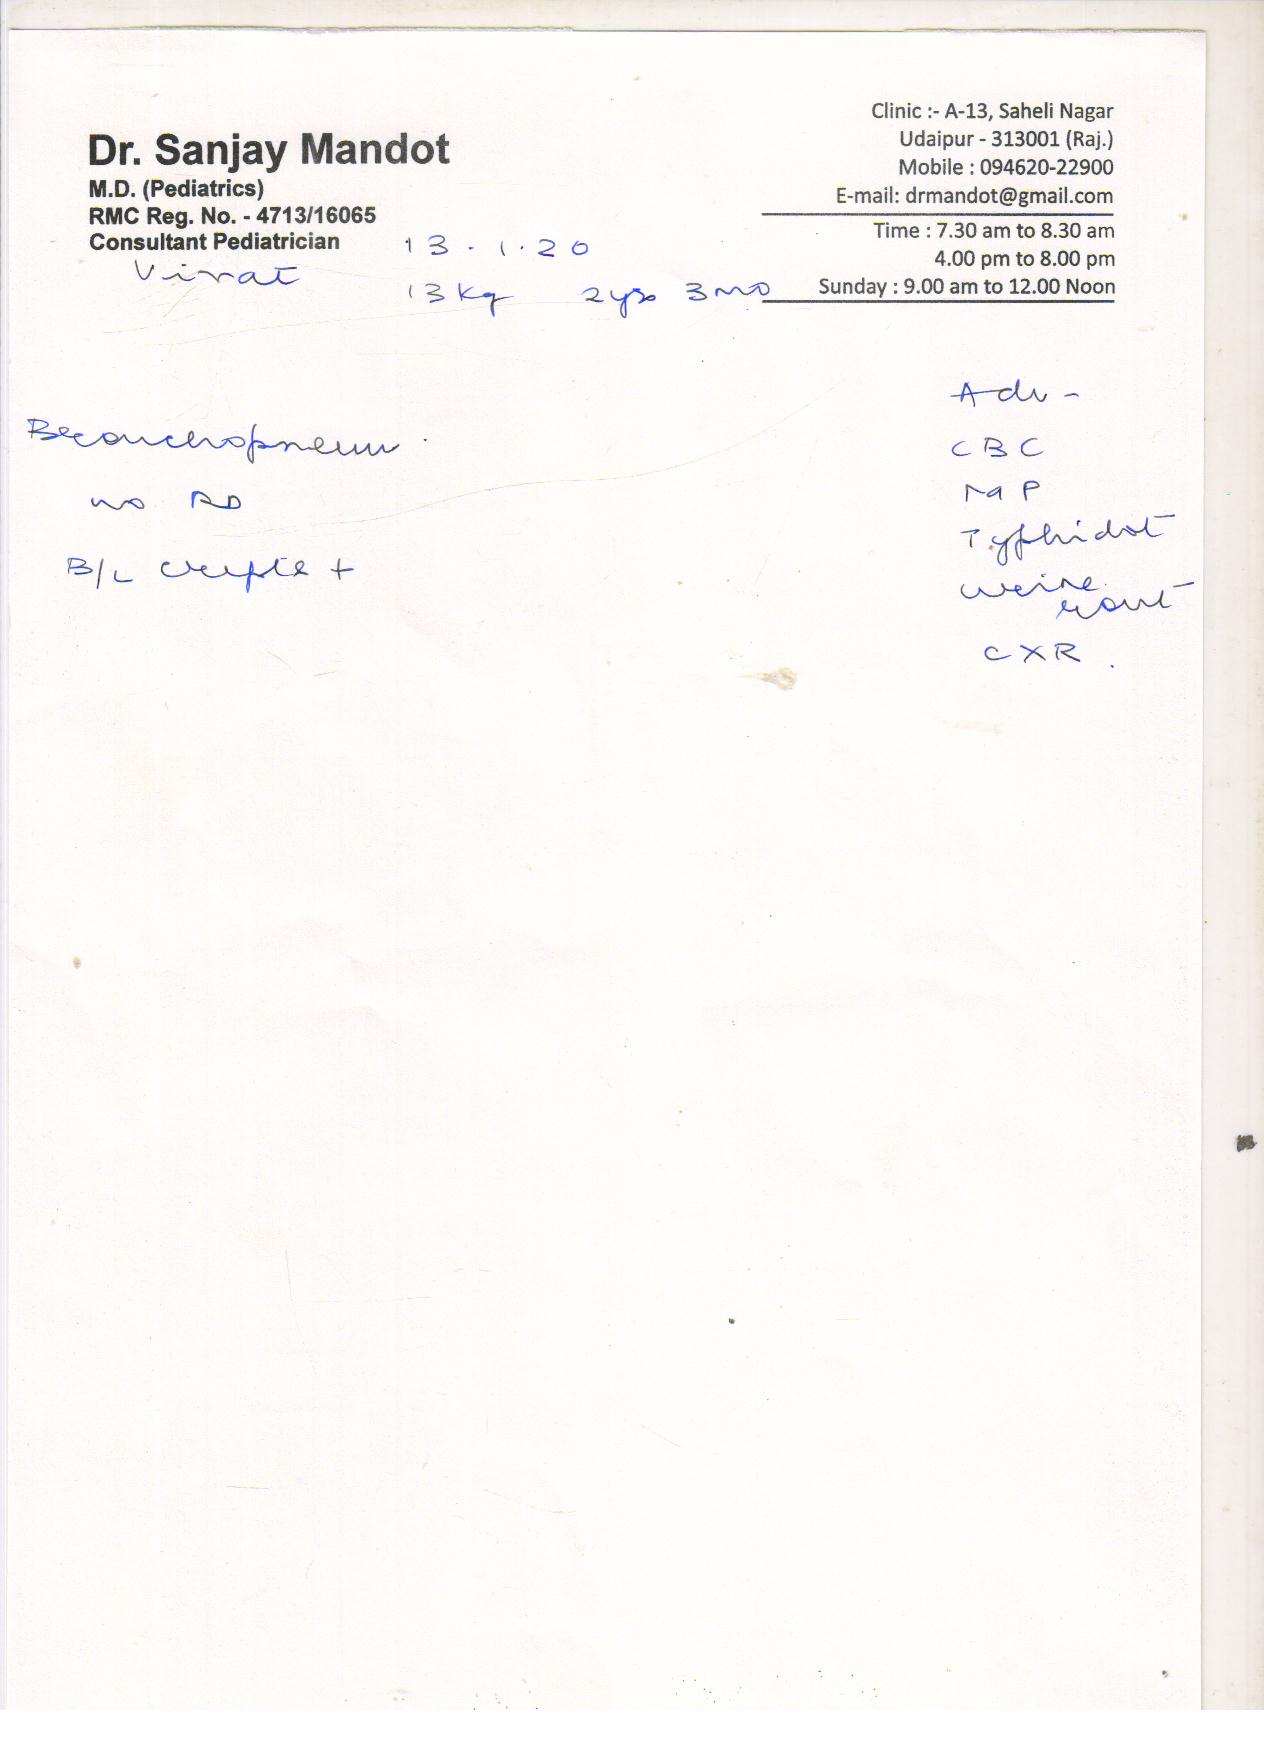 Dr. Sanjay Mandot
M.D. (Pediatrics)
RMC Reg. No. - 4713/16065
Consultant Pediatrician
Clinic :- A-13, Saheli Nagar
Udaipur - 313001 (Raj.)
Mobile : 094620-22900
E-mail: drmandot@gmail.com
Time : 7.30 am to 8.30 am
4.00 pm to 8.00 pm
Sunday : 9.00 am to 12.00 Noon
13.1.20
Virat
13 kg 2yrs 3mo
Bronchopneum
no RD
B/L crepts +
Adv -
CBC
MP
Typhidot
urine
rout
CXR